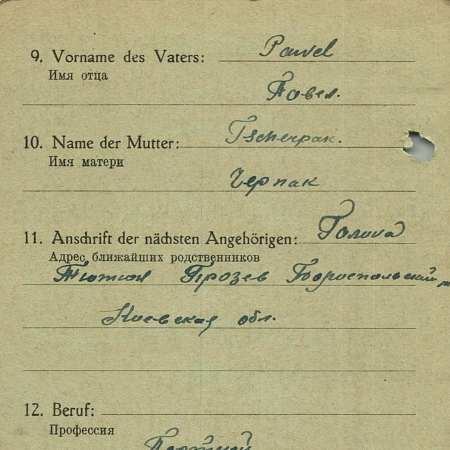 9. Vorname des Vaters: Pawel
Имя отца
Павел.
10. Name der Mutter: Tscherpak.
Имя матери
Черпак
11. Anschrift der nächsten Angehörigen:
Адрес ближайших родственников
Бориспольский
Киевская обл.
12. Beruf:
Профессия
Портной